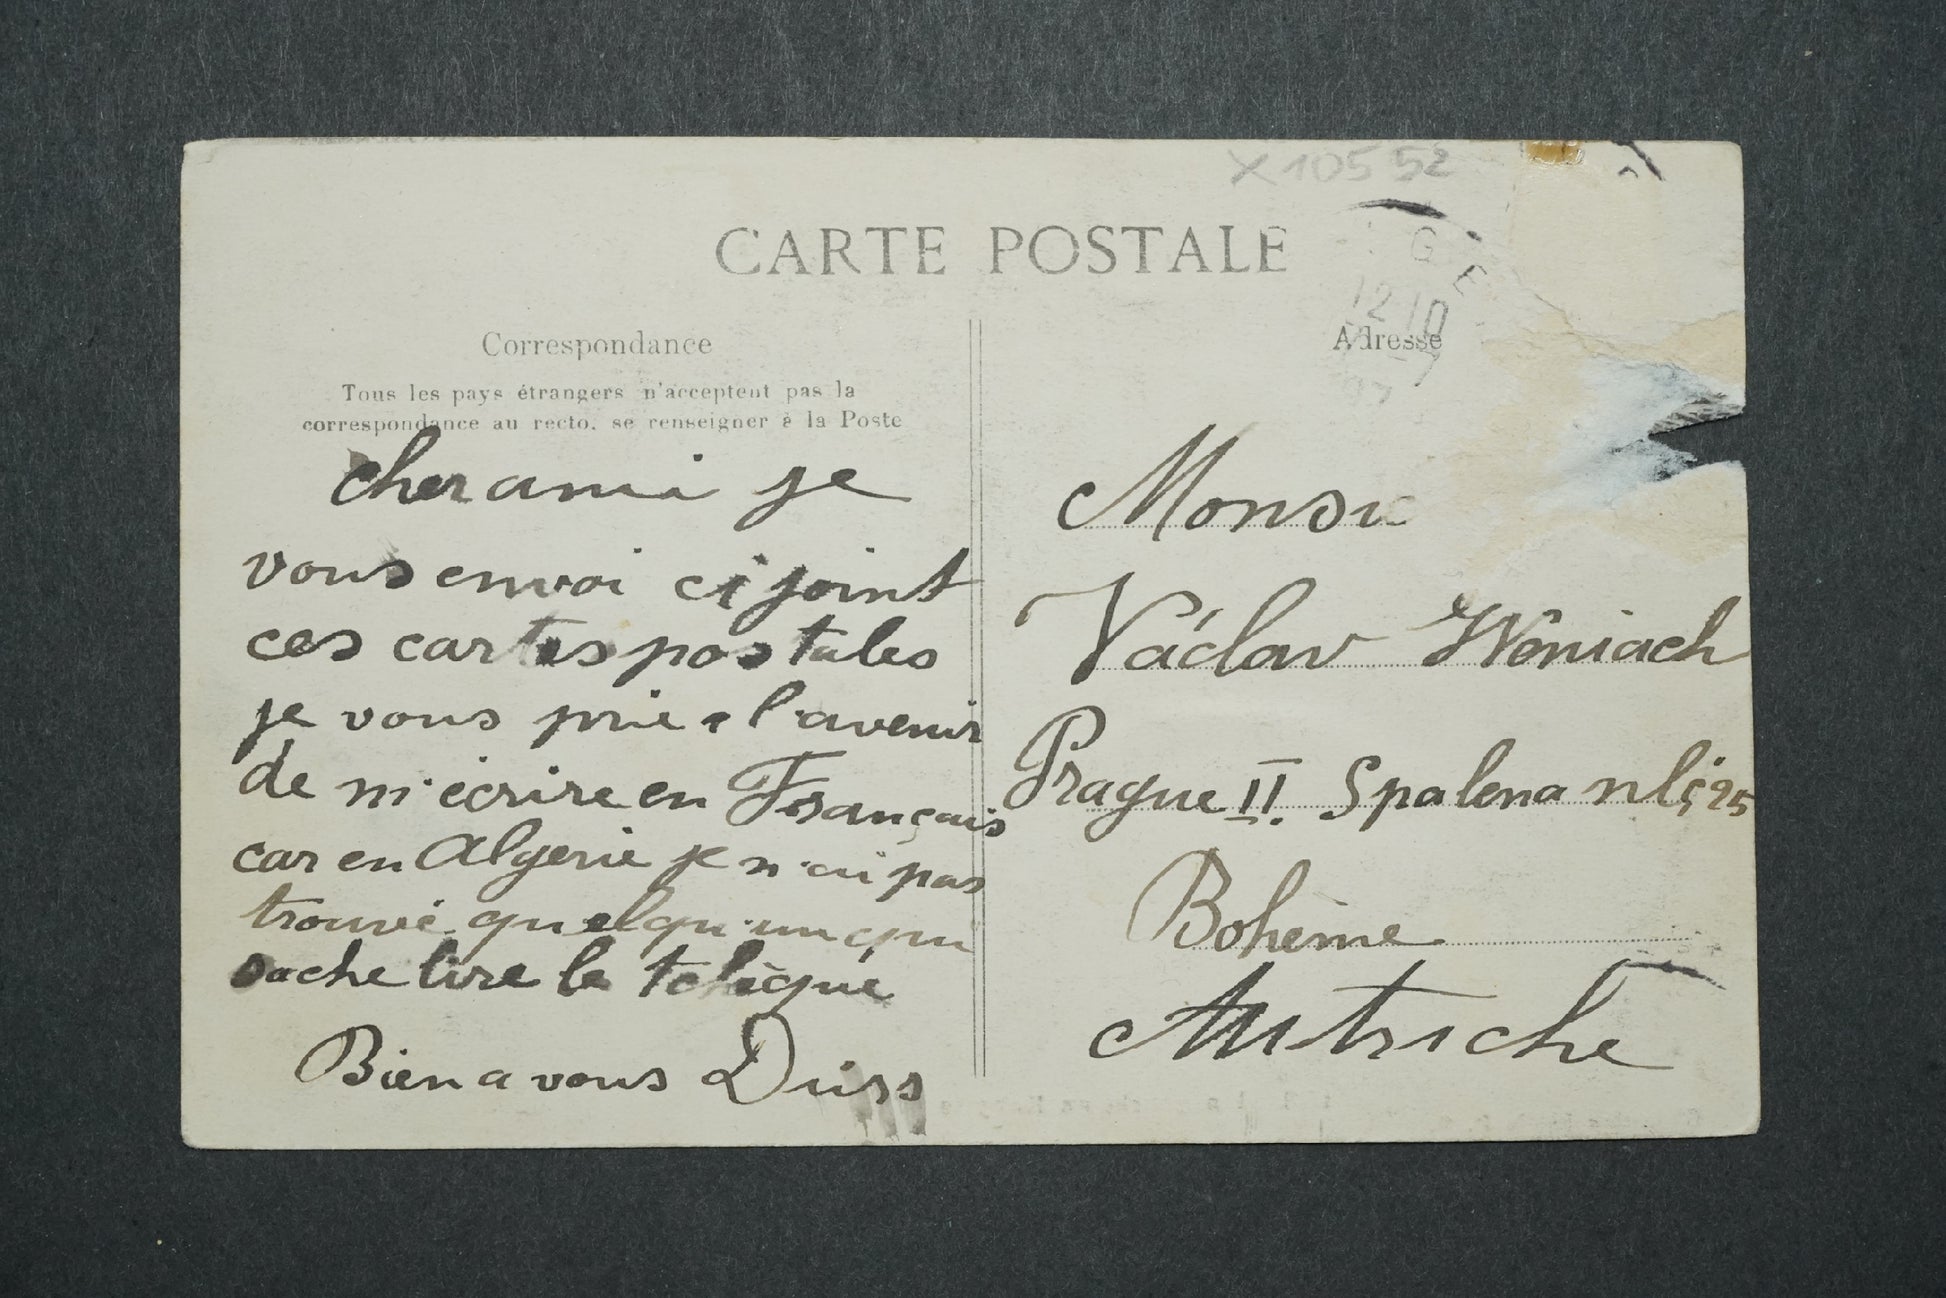 X10552
CARTE POSTALE
GE
12 10
Correspondance
Adresse
Tous les pays étrangers n'acceptent pas la
correspondance au recto, se renseigner à la Poste
cher ami je
vous envoi ci joint
ces cartes postales
je vous prie a l'avenir
de m'écrire en Français
car en Algerie je n'ai pas
trouvé quelqu'un qui
sache lire le tchèque
Bien a vous
Monsi
Václav
Prague II. Spalena 25
Bohème
Autriche